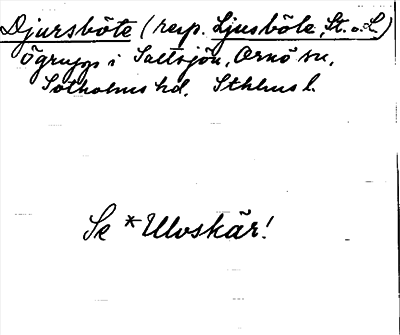 Djursböte (resp. Ljusböte, St. o. L.)
Ögrupp i Saltsjön, Ornö sn,
Sotholms hd, Sthlms l.
Se *Ulvskär!